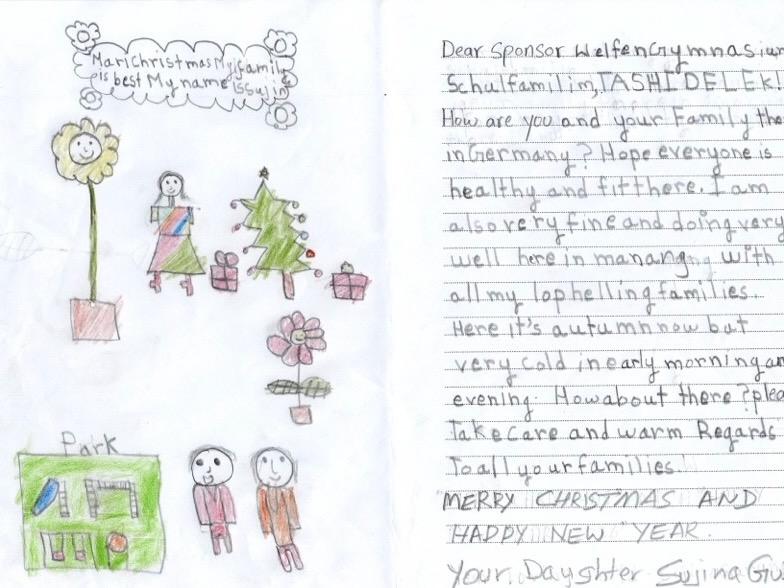 MariChristmas My family
is best My name is Sujin
Park
Dear Sponsor WelfenGymnasium
Schulfamilim, TASHI DELEK!
How are you and your Family the
in Germany? Hope everyone is
healthy and fit there. I am
also very fine and doing very
well here in manang with
all my lophelling families.
Here it's autumn now but
very cold in early morning an
evening. How about there ? plea
Take care and warm Regards
To all your families.
MERRY CHRISTMAS AND
HAPPY NEW YEAR.
Your Dayghter Sujina Gu